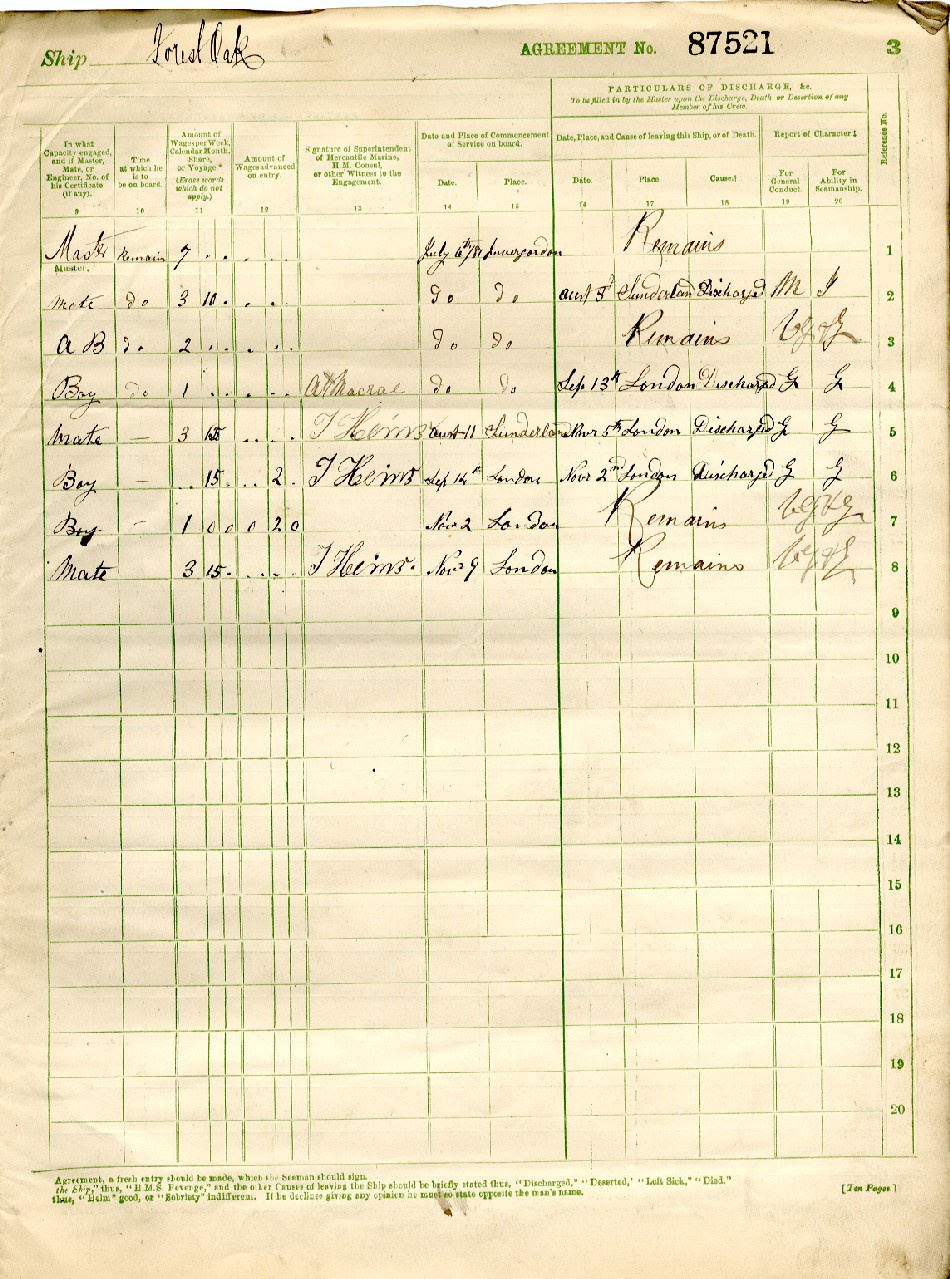 Ship Forest Oak AGREEMENT No. 87521 3
PARTICULARS OF DISCHARGE, &c.
To be filled in by the Master upon the Discharge, Death or Desertion of any Member of his Crew.
In what Capacity engaged, and if Master, Mate, or Engineer, No. of his Certificate (if any).
Time at which he is to be on board.
Amount of Wages per Week, Calendar Month, Share, or Voyage* (Erase words which do not apply.)
Amount of Wages advanced on entry.
Signature of Superintendent of Mercantile Marine, H.M. Consul, or other Witness to the Engagement.
Date and Place of Commencement of Service on board.
Date. Place.
Date, Place, and Cause of leaving this Ship, or of Death.
Date. Place. Cause.‡
Report of Character ‡
For General Conduct. For Ability in Seamanship.
Reference No.
9 10 11 12 13 14 15 16 17 18 19 20
Master Remain 7 July 6th Invergordon Remains 1
Master.
Mate Do 3 10 Do Do Sunderland Discharged 2
A B Do 2 Do Do Remains VG VG 3
Boy Do 1 A Macrae Do Do Sep 13th London Discharged G G 4
Mate — 3 15 T Heins 11 Sunderland Novr 5th London Discharged G G 5
Boy — 15 2 T Heins Sep 14th London Novr 2nd London Discharged G G 6
Boy - 1 0 0 0 2 0 Nov 2 London Remains VG VG 7
Mate 3 15 T Heins Nov 9 London Remains VG VG 8
9
10
11
12
13
14
15
16
17
18
19
20
Agreement, a fresh entry should be made, which the Seaman should sign.
the Ship," thus, "H.M.S. Revenge," and the other Causes of leaving the Ship should be briefly stated thus, "Discharged," "Deserted," "Left Sick," "Died."
thus, "Helm" good, or "Sobriety" indifferent. If he declines giving any opinion he must so state opposite the man's name.
[Ten Pages.]